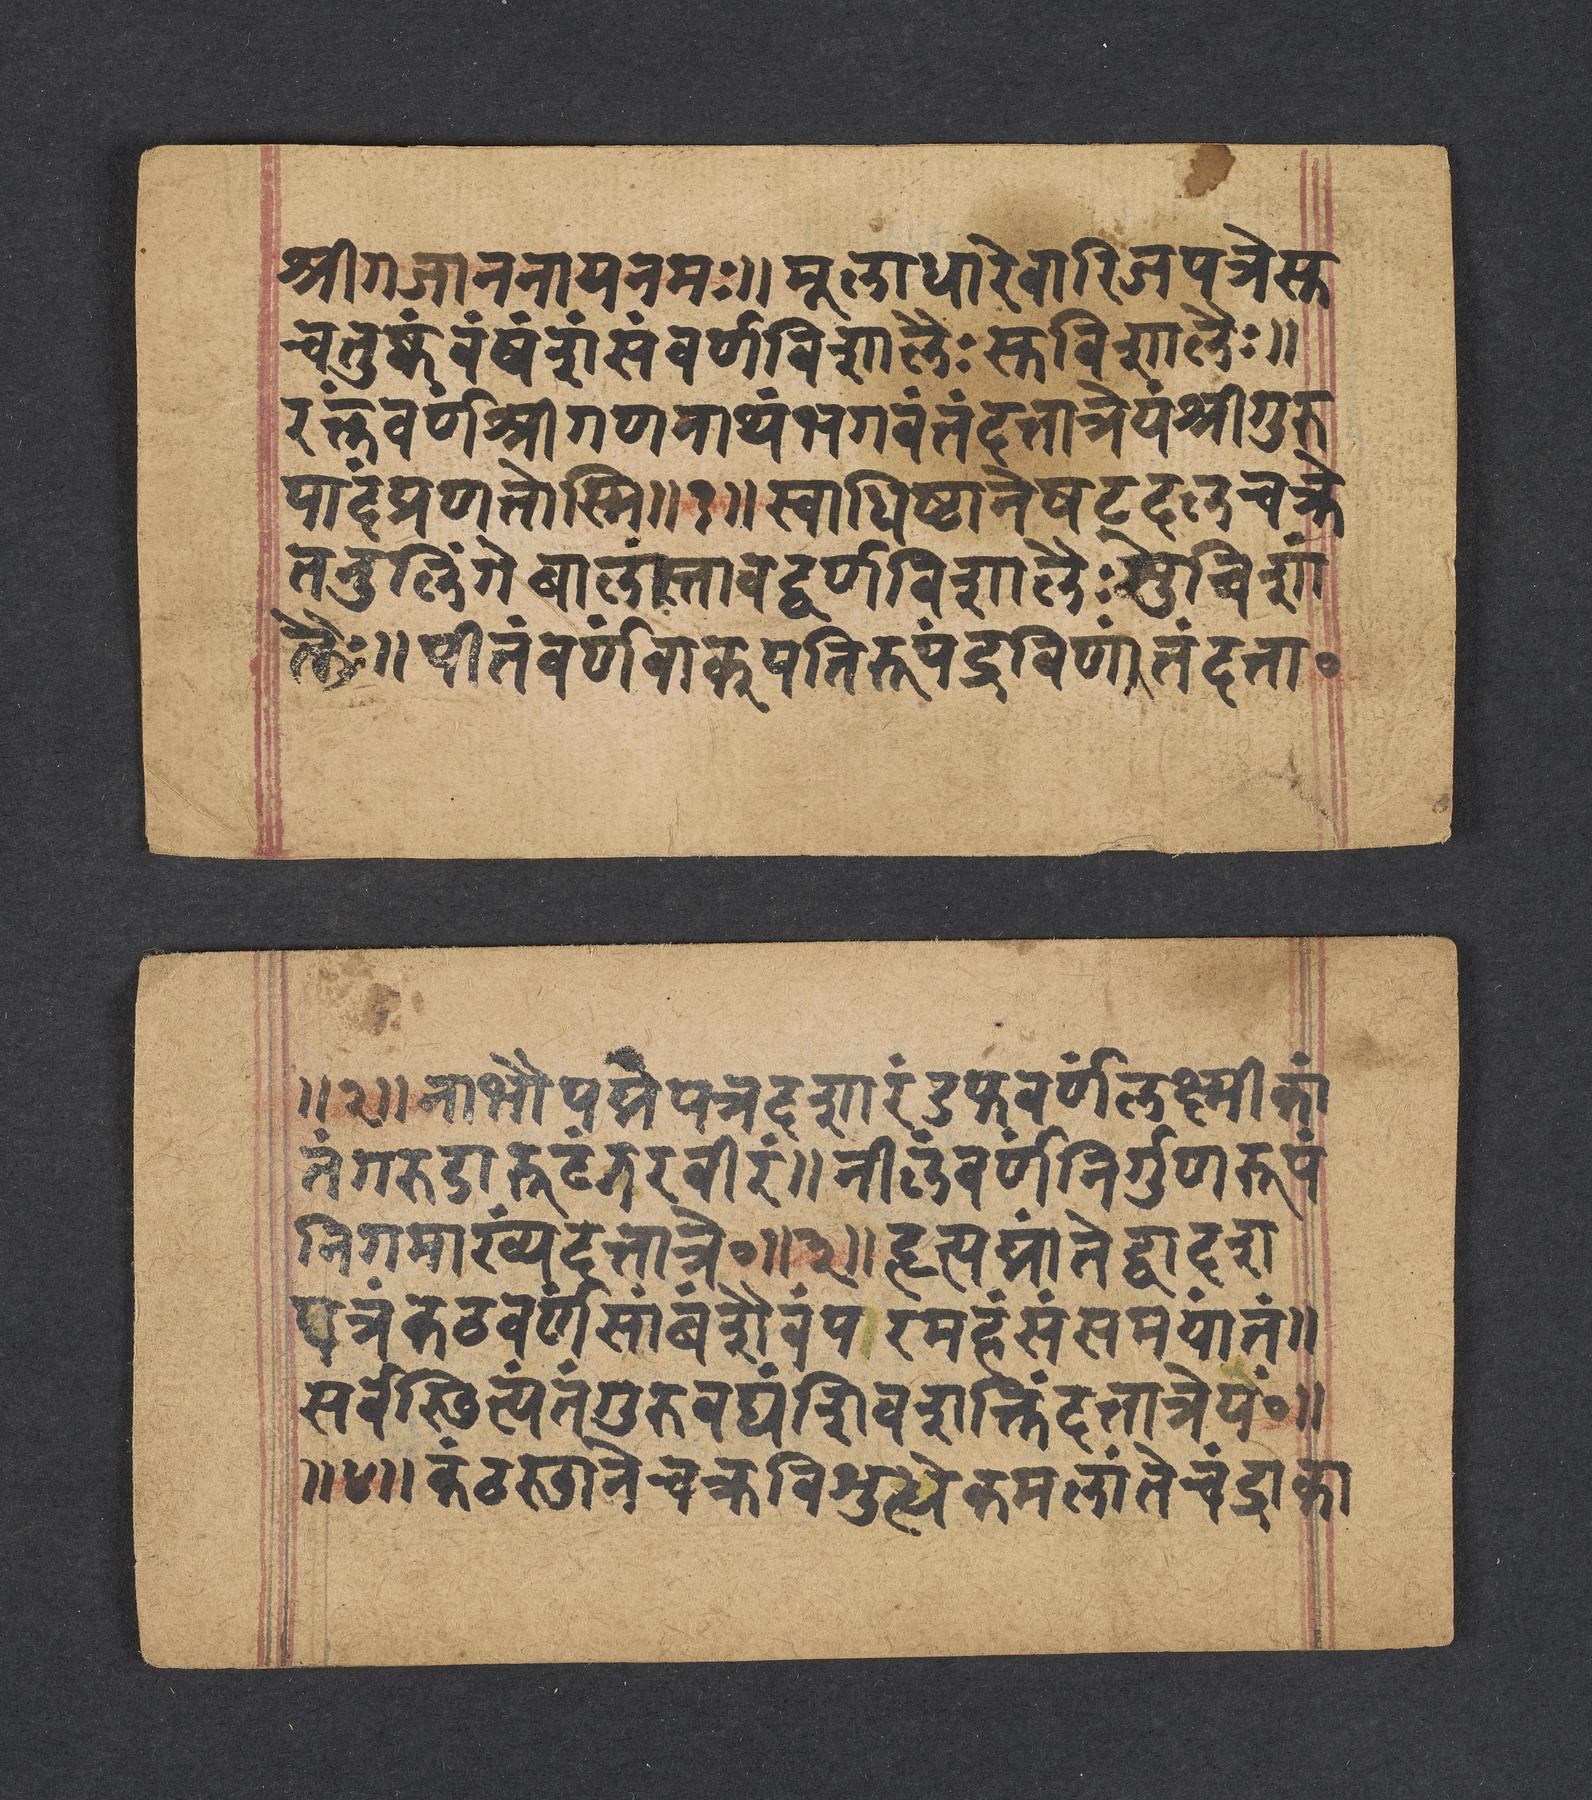 श्रीगजाननायनमः॥ मूलाधारेवारिजपत्रेस्त
चतुष्कंवंषंशंसंवर्णविशालैः स्तविशालैः॥
रंक्तवर्णश्रीगणनाथंभगवंतंदत्तात्रेयंश्रीगुरु
पादंप्रणतोस्मि॥१॥ स्वाधिष्टानेषटदलचक्रे
तनुलिंगे बालांस्तावद्वर्णविशालैः सुविशां
लैः॥ पीतंवर्णवाक्पतिरूपंद्रुविणंतंदत्ता॰
॥२॥ नाभौपद्मेपत्रदशारंडफवर्णंलक्ष्मीकां
तंगरुडारूढंनरवीरं॥ नीलंवर्णंनिर्गुणरूपं
निगमारंव्यदत्तात्रे॰॥३॥ हृत्पद्मांतेद्वादश
पत्रंकठवर्णंसांबंशैवंप रमहंसंसमयांतं॥
सर्गस्थित्यंतंगुरुवद्यंशिवशक्तिंदत्तात्रेयं॰॥
॥४॥ कंठस्छानेचक्रविशुत्धेकमलांतेचंद्राका